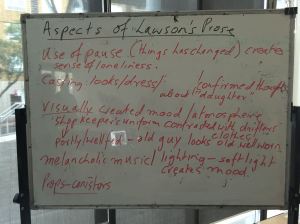 Aspects of Lawson's Prose
Use of pause (things has changed) creates
sense of loneliness.
Casting: looks/dress/ "confirmed thoughts
about "daughter"
Visually created mood/atmosphere
shopkeeper's uniform contrasted with drifters
clothes
portly/wellfed - old guy looks old wellworn
melancholic music/ lighting - soft light
creates mood.
Props - canistors